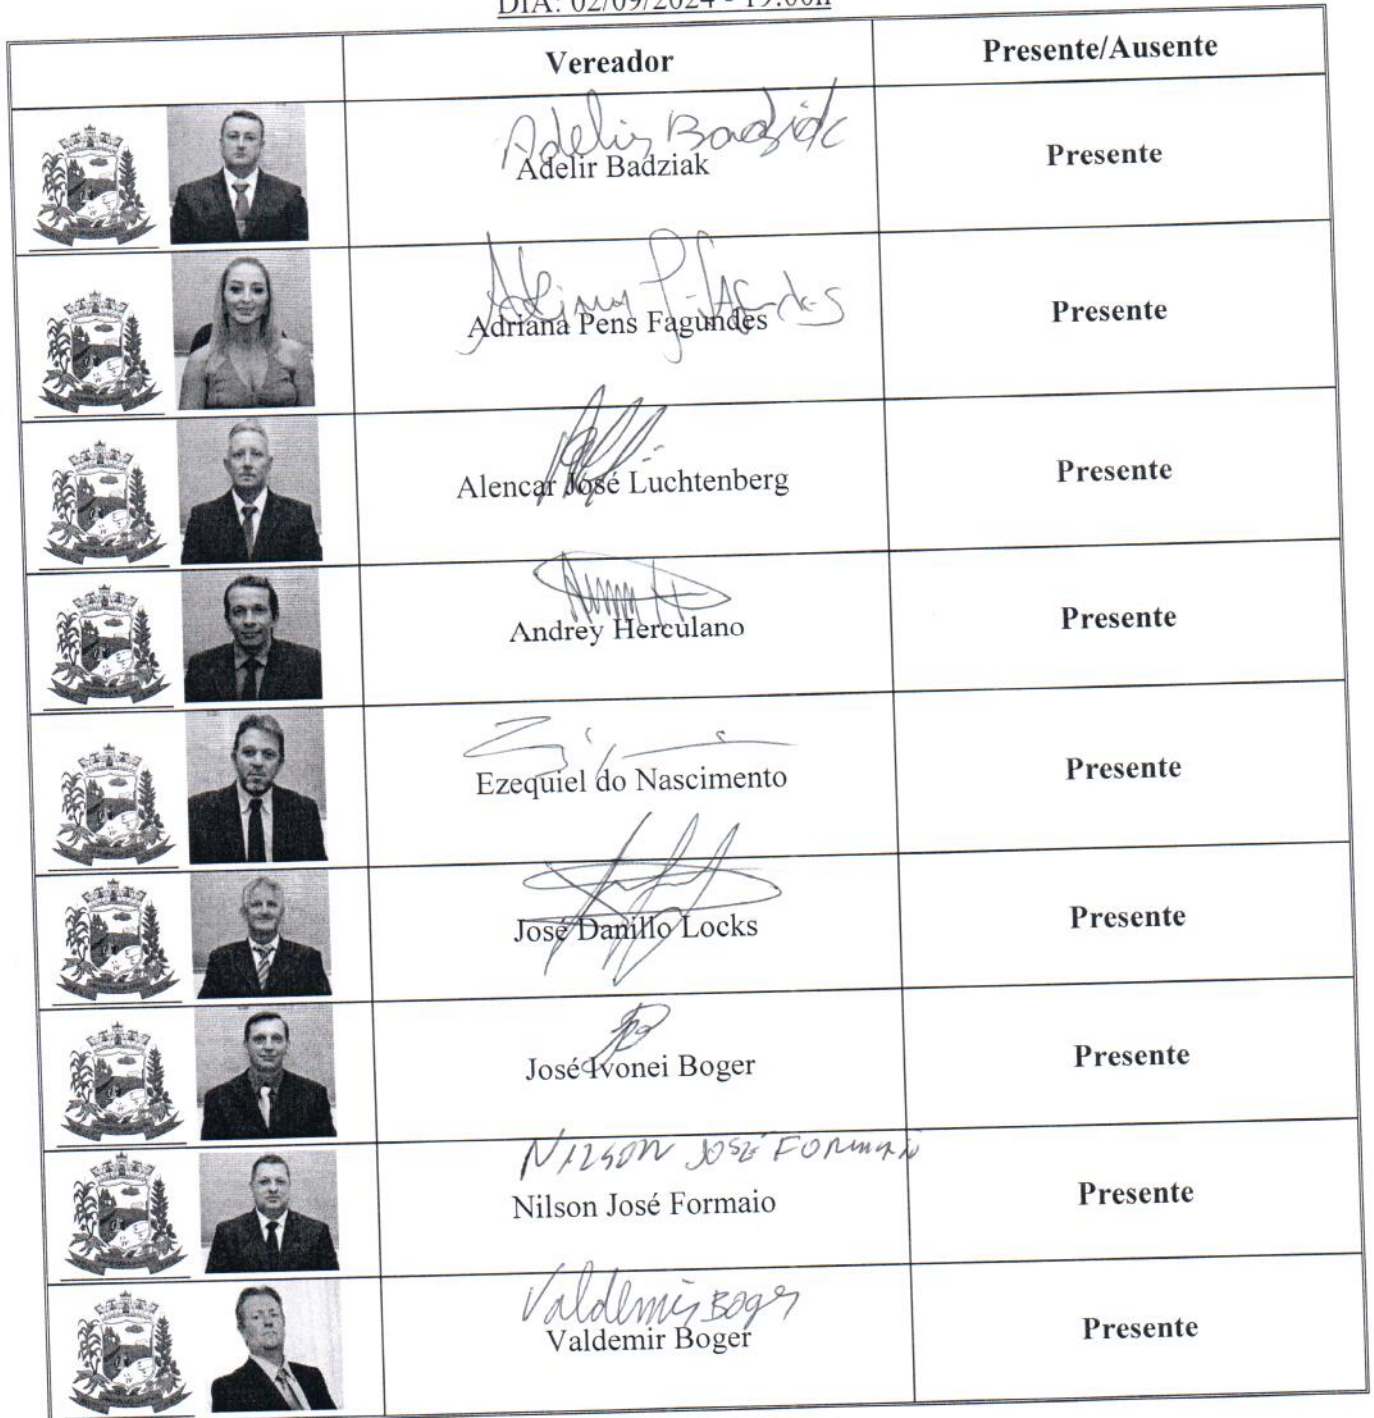 DIA: 02/09/2024 - 19:00h
Vereador Presente/Ausente
Adelir Badziak
Adelir Badziak Presente
Adriana P. Fagundes
Adriana Pens Fagundes Presente
Alencar José Luchtenberg Presente
Andrey Herculano Presente
Ezequiel do Nascimento Presente
José Danillo Locks Presente
José Ivonei Boger Presente
NILSON JOSÉ FORMAIO
Nilson José Formaio Presente
Valdemir Boger
Valdemir Boger Presente